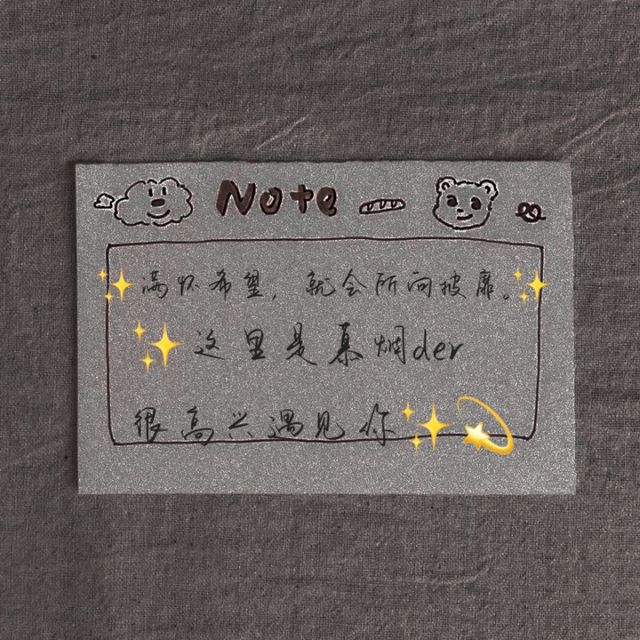 Note
满怀希望，就会所向披靡。
这里是慕烟der
很高兴遇见你